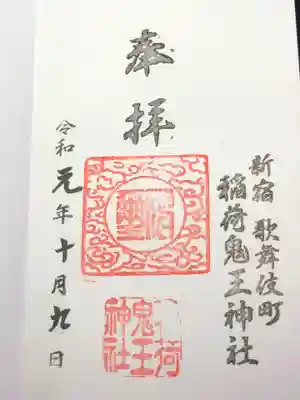 新宿 歌舞伎町
稲荷鬼王神社
奉拝
令和元年十月九日
荷
鬼王
神社